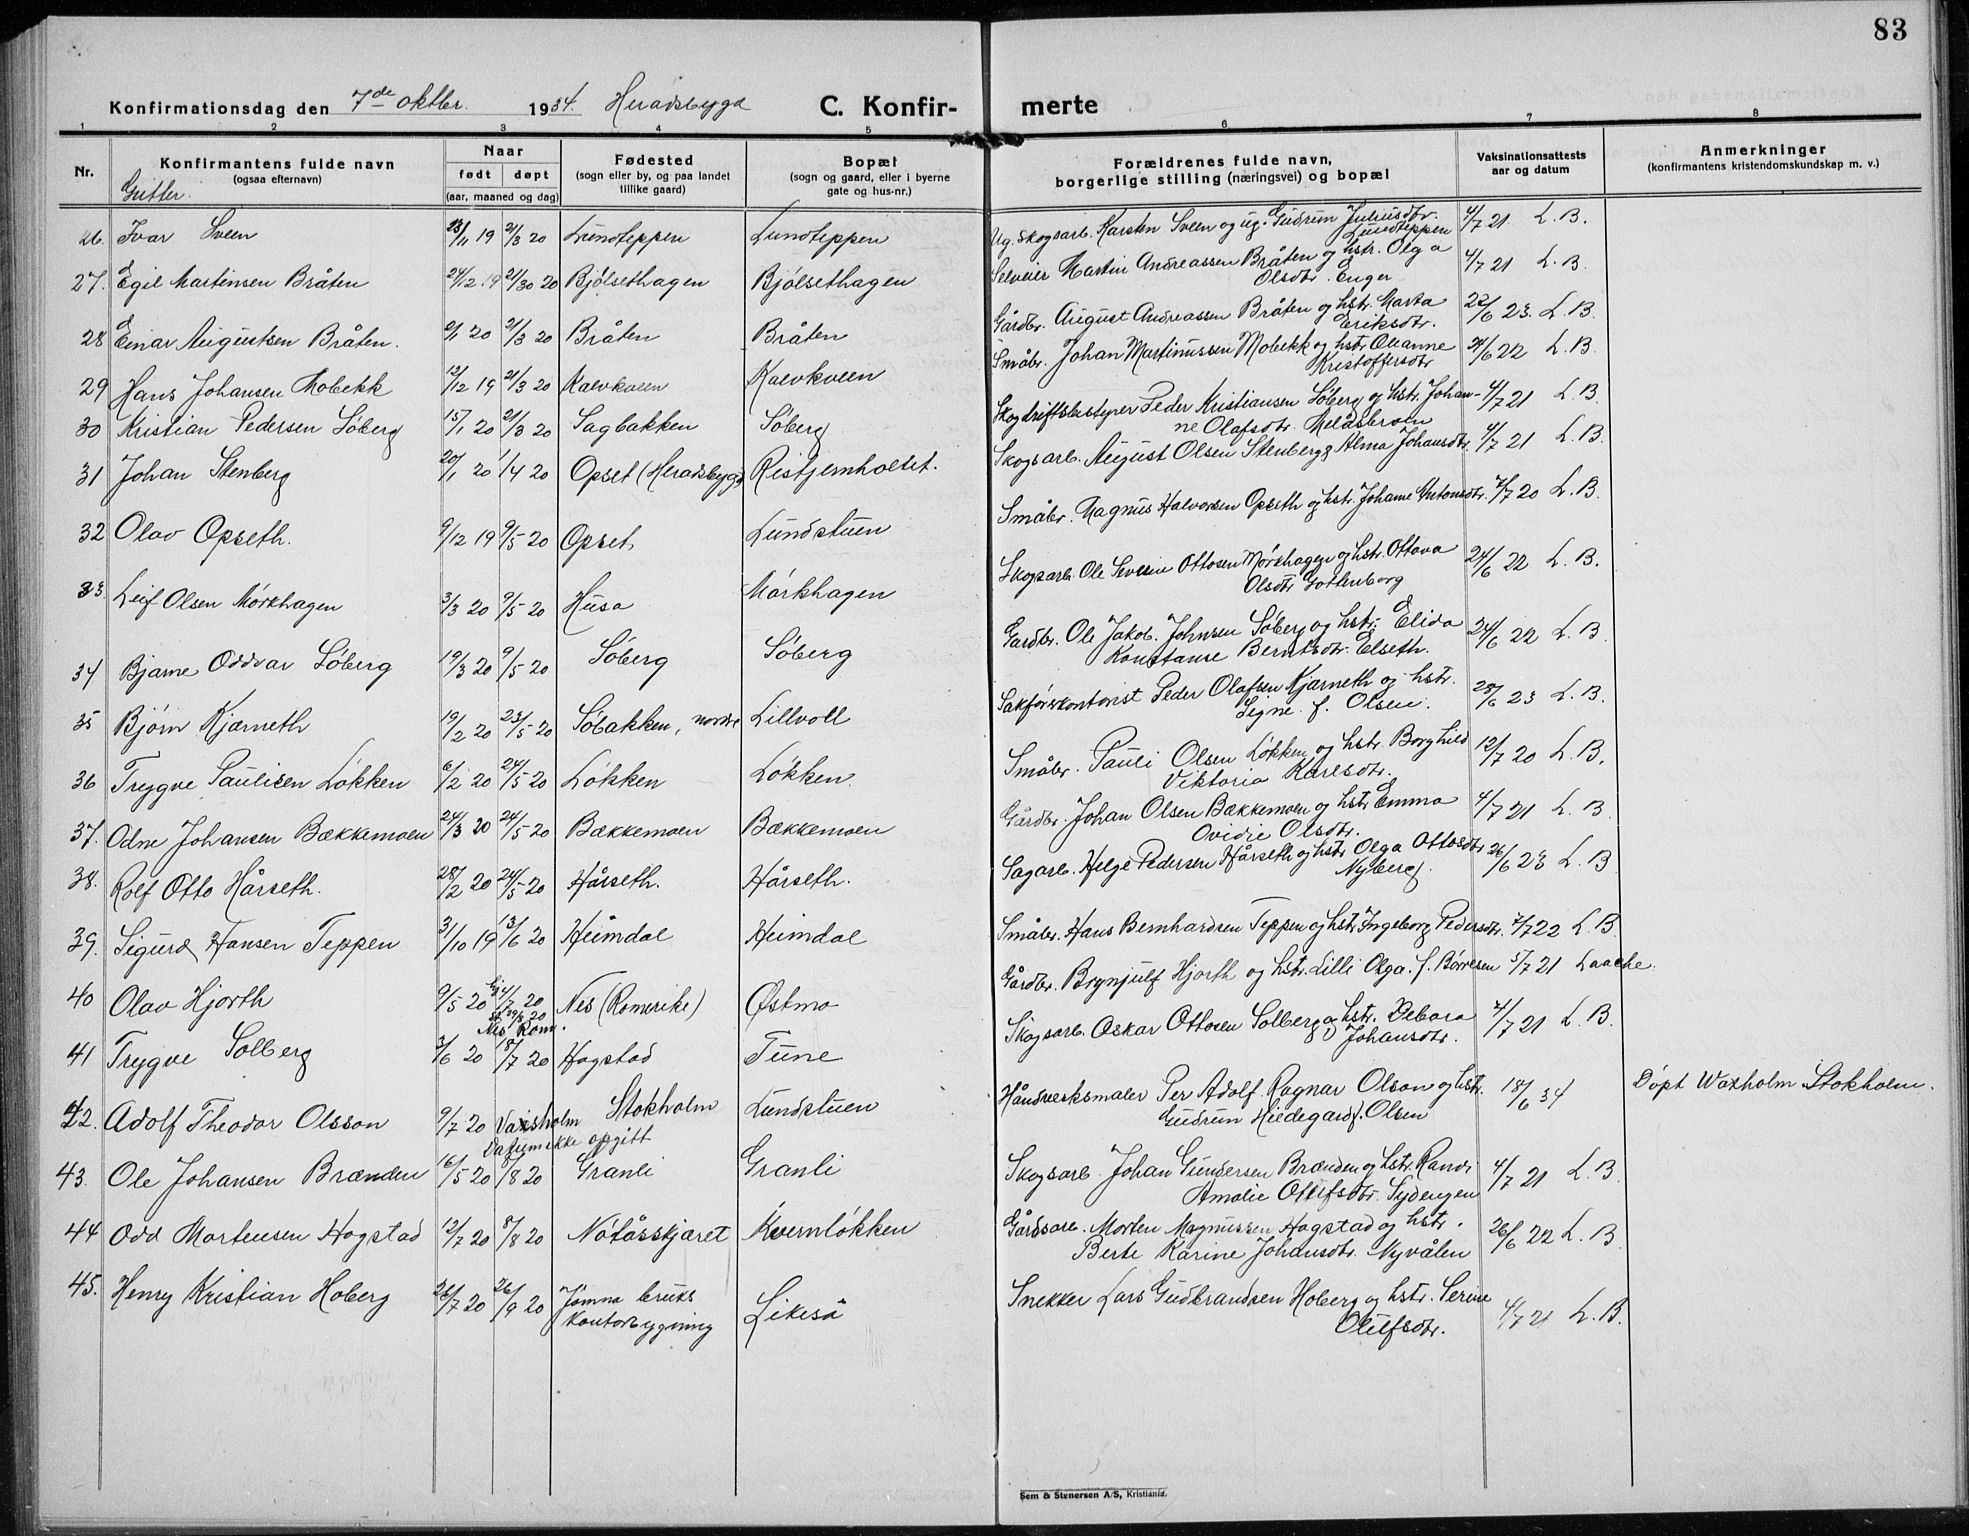 83
Konfirmationsdag den 7de oktbr. 1934. Heradsbygd C. Konfir- merte
1 2 3 4 5 6 7 8
Nr. Konfirmantens fulde navn (ogsaa efternavn) Naar født døpt (aar, maaned og dag) Fødested (sogn eller by, og paa landet tillike gaard) Bopæl (sogn og gaard, eller i byerne gate og hus-nr.) Forældrenes fulde navn, borgerlige stilling (næringsvei) og bopæl Vaksinationsattests aar og datum Anmerkninger (konfirmantens kristendomskundskap m. v.)
Gutter.
26. Ivar Sveen 23/11 19 21/3 20 Lundteppen Lundteppen Ug. skogsarb. Karsten Sveen og ug. Gudrun Juliusdtr. Lundteppen 4/7 21 L. B.
27. Egil Martinsen Bråten 24/12 19 21/30 20 Bjølsethagen Bjølsethagen Selveier Martin Andreassen Bråten og hstr. Olga
Olsdtr. Enger 4/7 21 L. B.
28 Einar Augustsen Bråten. 2/1 20 21/3 20 Bråten Bråten Gårdbr. August Andreassen Bråten og hstr. Marta
Eriksdtr. 22/6 23. L. B.
29 Hans Johansen Mobekk 12/12 19 21/3 20 Kalvkveen Kalvkveen Småbr. Johan Martinussen Mobekk og hstr. Olianne
Kristoffersdtr 24/6 22 L. B.
30 Kristian Pedersen Søberg 15/1 20 21/3 20 Sagbakken Søberg Skogdriftsbestyrer Peder Kristiansen Søberg og hstr. Johan-
ne Olafsdtr. Melåsbroen 4/7 21 L. B.
31 Johan Stenberg 20/1 20 1/4 20 Opset (Heradsbygd) Ristjernholtet. Skogsarb. August Olsen Stenberg & Alma Johansdtr. 4/7 21 L. B.
32 Olav Opseth. 9/12 19 9/5 20 Opset Lundstuen Småbr. Magnus Halvorsen Opseth og hstr. Johanne Antonsdtr. 7/7 20 L. B.
33. Leif Olsen Mørkhagen 3/3 20 9/5 20 Husa Mørkhagen Skogsarb. Ole Severin Ottosen Mørkhagen og hstr. Ottova
Olsdtr Gottenborg 24/6 22 L. B.
34 Bjarne Oddvar Søberg 19/3 20 9/5 20 Søberg Søberg Gardbr. Ole Jakob Johnsen Søberg og hstr. Elida
Konstanse Berntsdtr. Elseth. 24/6 22 L. B.
35 Bjørn Kjærneth 19/2 20 23/5 20 Søbakken, nordre Lillvoll Sakførerkontorist Peder Olafsen Kjærneth og hstr.
Signe f. Olsen. 28/6 23 L. B.
36 Trygve Paulisen Løkken 6/2 20 24/5 20 Løkken Løkken. Småbr. Pauli Olsen Løkken og hstr. Borghild
Viktoria Karlsdtr. 12/7 20 L. B.
37. Odne Johansen Bækkemoen 24/3 20 24/5 20 Bækkemoen Bækkemoen Gårdbr. Johan Olsen Bækkemoen og hstr Emma
Ovidie Olsdtr. 4/7 21 L. B.
38. Rolf Otto Hårseth. 28/2 20 24/5 20 Hårseth. Hårseth. Sagarb. Helge Pedersen Hårseth og hstr Olga Ottosdtr
Nyberg. 26/6 23 L. B
39. Sigurd Hansen Teppen 31/10 19 13/6 20 Heimdal Heimdal Småbr. Hans Bernhardsen Teppen og hstr Ingeborg Pedersdtr. 7/7 22 L. B.
40 Olav Hjorth 9/5 20 4/7 20 Nes (Romerike) Østmo Gårdbr. Brynjulf Hjorth og hstr. Lilli Olga. f. Børresen 5/7 21 Laache.
st. 29/8 20
Nes Rom.
41 Trygve Solberg 3/6 20 18/7 20 Hagstad Tune Skogsarb. Oskar Ottosen Solberg og hstr. Debora
Johansdtr. 4/7 21 L. B.
42. Adolf Theodor Olsson 9/7 20 Vaxsholm Stokholm Lundstuen Håndverksmaler Per Adolf Ragnar Olson og hstr.
Datum ikke opgitt Gudrun Hildegard f. Olsen 18/6 34 Døpt Waxholm Stokholm.
43. Ole Johansen Brænden 16/5 20 8/8 20 Granli Granli Skogsarb. Johan Gundersen Brænden og hstr. Randi
Amalie Olufsdtr. Sydengen 4/7 21 L. B.
44 Odd Mortensen Hagstad 12/7 20 8/8 20 Nøtåsskjæret Kvernløkken Gårdsarb. Morten Magnussen Hagstad og hstr.
Berte Karine Johansdtr. Nyvålen 26/6 22 L. B.
45. Henry Kristian Hoberg 26/7 20 26/9 20 Jømna bruks
kontorbygning Likeså Snekker Lars Gudbrandsen Hoberg og hstr. Serine
Olufsdtr. 4/7 21 L. B.
Sem & Stenersen A/S, Kristiania.